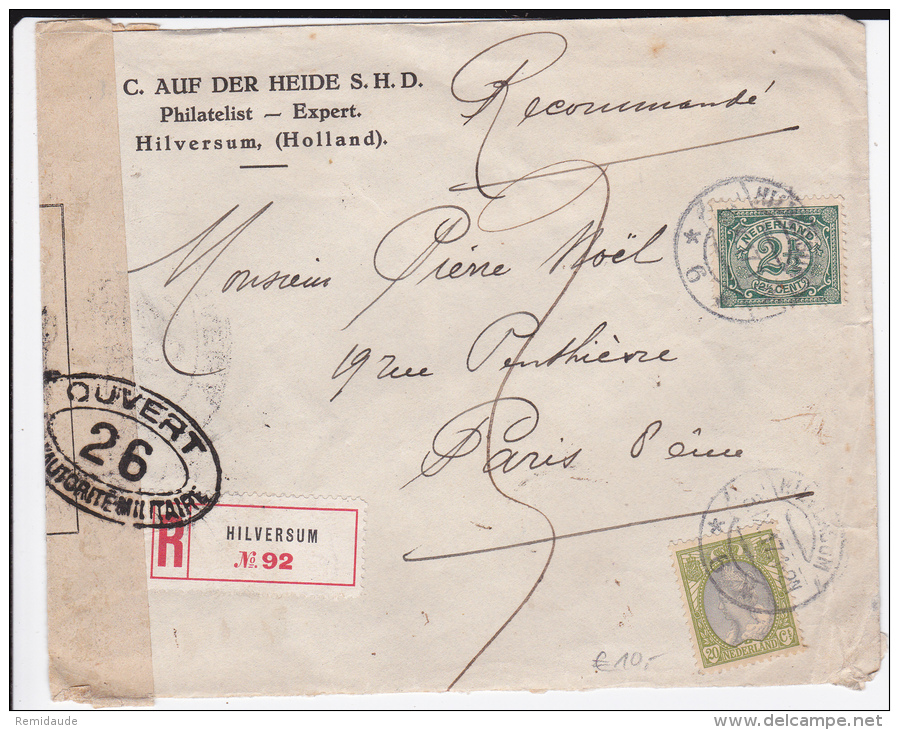 C. AUF DER HEIDE S.H.D.
Philatelist — Expert.
Hilversum, (Holland).
Recommandé
Monsieur Pierre Noël
19 rue Penthièvre
Paris 8 ème
NEDERLAND
2½
2½ CENT
6
OUVERT
26
AUTORITÉ MILITAIRE
R
HILVERSUM
No. 92
20 Ct
NEDERLAND
€10,-
Remidaude
www.delcampe.net